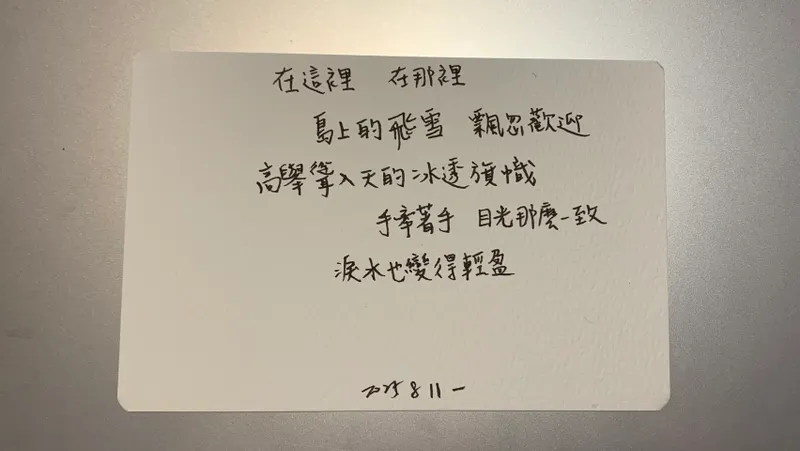 在這裡 在那裡
島上的飛雪 飄忽歡迎
高舉聳入天的冰透旗幟
手牽著手 目光那麼一致
淚水也變得輕盈
2025 8 11 一